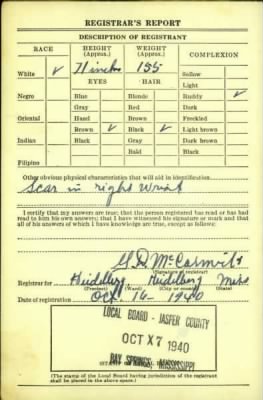 REGISTRAR'S REPORT
DESCRIPTION OF REGISTRANT
RACE HEIGHT (Approx.) WEIGHT (Approx.) COMPLEXION
White ✓ 71 inches 155 Sallow
EYES HAIR Light
Negro Blue Blonde Ruddy ✓
Gray Red Dark
Oriental Hazel Brown Freckled
Brown ✓ Black ✓ Light brown
Indian Black Gray Dark brown
Bald Black
Filipino
Other obvious physical characteristics that will aid in identification
Scar in right wrist
I certify that my answers are true; that the person registered has read or has had read to him his own answers; that I have witnessed his signature or mark and that all of his answers of which I have knowledge are true, except as follows:
(Signature of registrar)
Registrar for Heidelberg Heidelberg Miss
(Precinct) (Ward) (City or county)
Date of registration Oct. 16 - 1940
LOCAL BOARD - JASPER COUNTY
OCT X7 1940
BAY SPRINGS, MISSISSIPPI
(The stamp of the Local Board having jurisdiction of the registrant
shall be placed in the above space.)